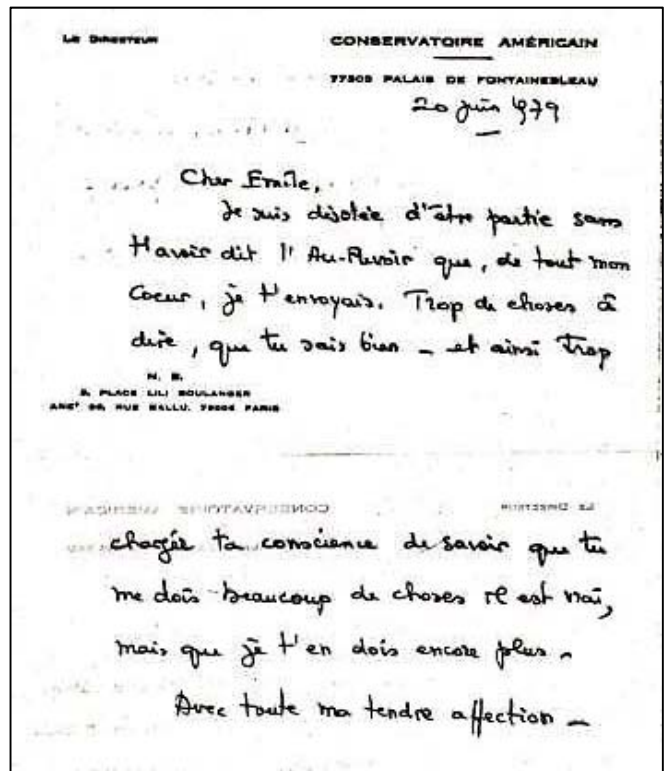 LE DIRECTEUR
CONSERVATOIRE AMÉRICAIN
77305 PALAIS DE FONTAINEBLEAU
20 juin 1979
Cher Emile,
Je suis désolée d'être partie sans
t'avoir dit l'Au-Revoir que, de tout mon
Coeur, je t'envoyais. Trop de choses à
dire, que tu sais bien – et ainsi Trop
N. B.
3, PLACE LILI BOULANGER
ANCT 36, RUE BALLU. 75009 PARIS
LE DIRECTEUR
CONSERVATOIRE AMÉRICAIN
ta conscience de savoir que tu
me dois beaucoup de choses il est vrai,
mais que je t'en dois encore plus –
Avec toute ma tendre affection –